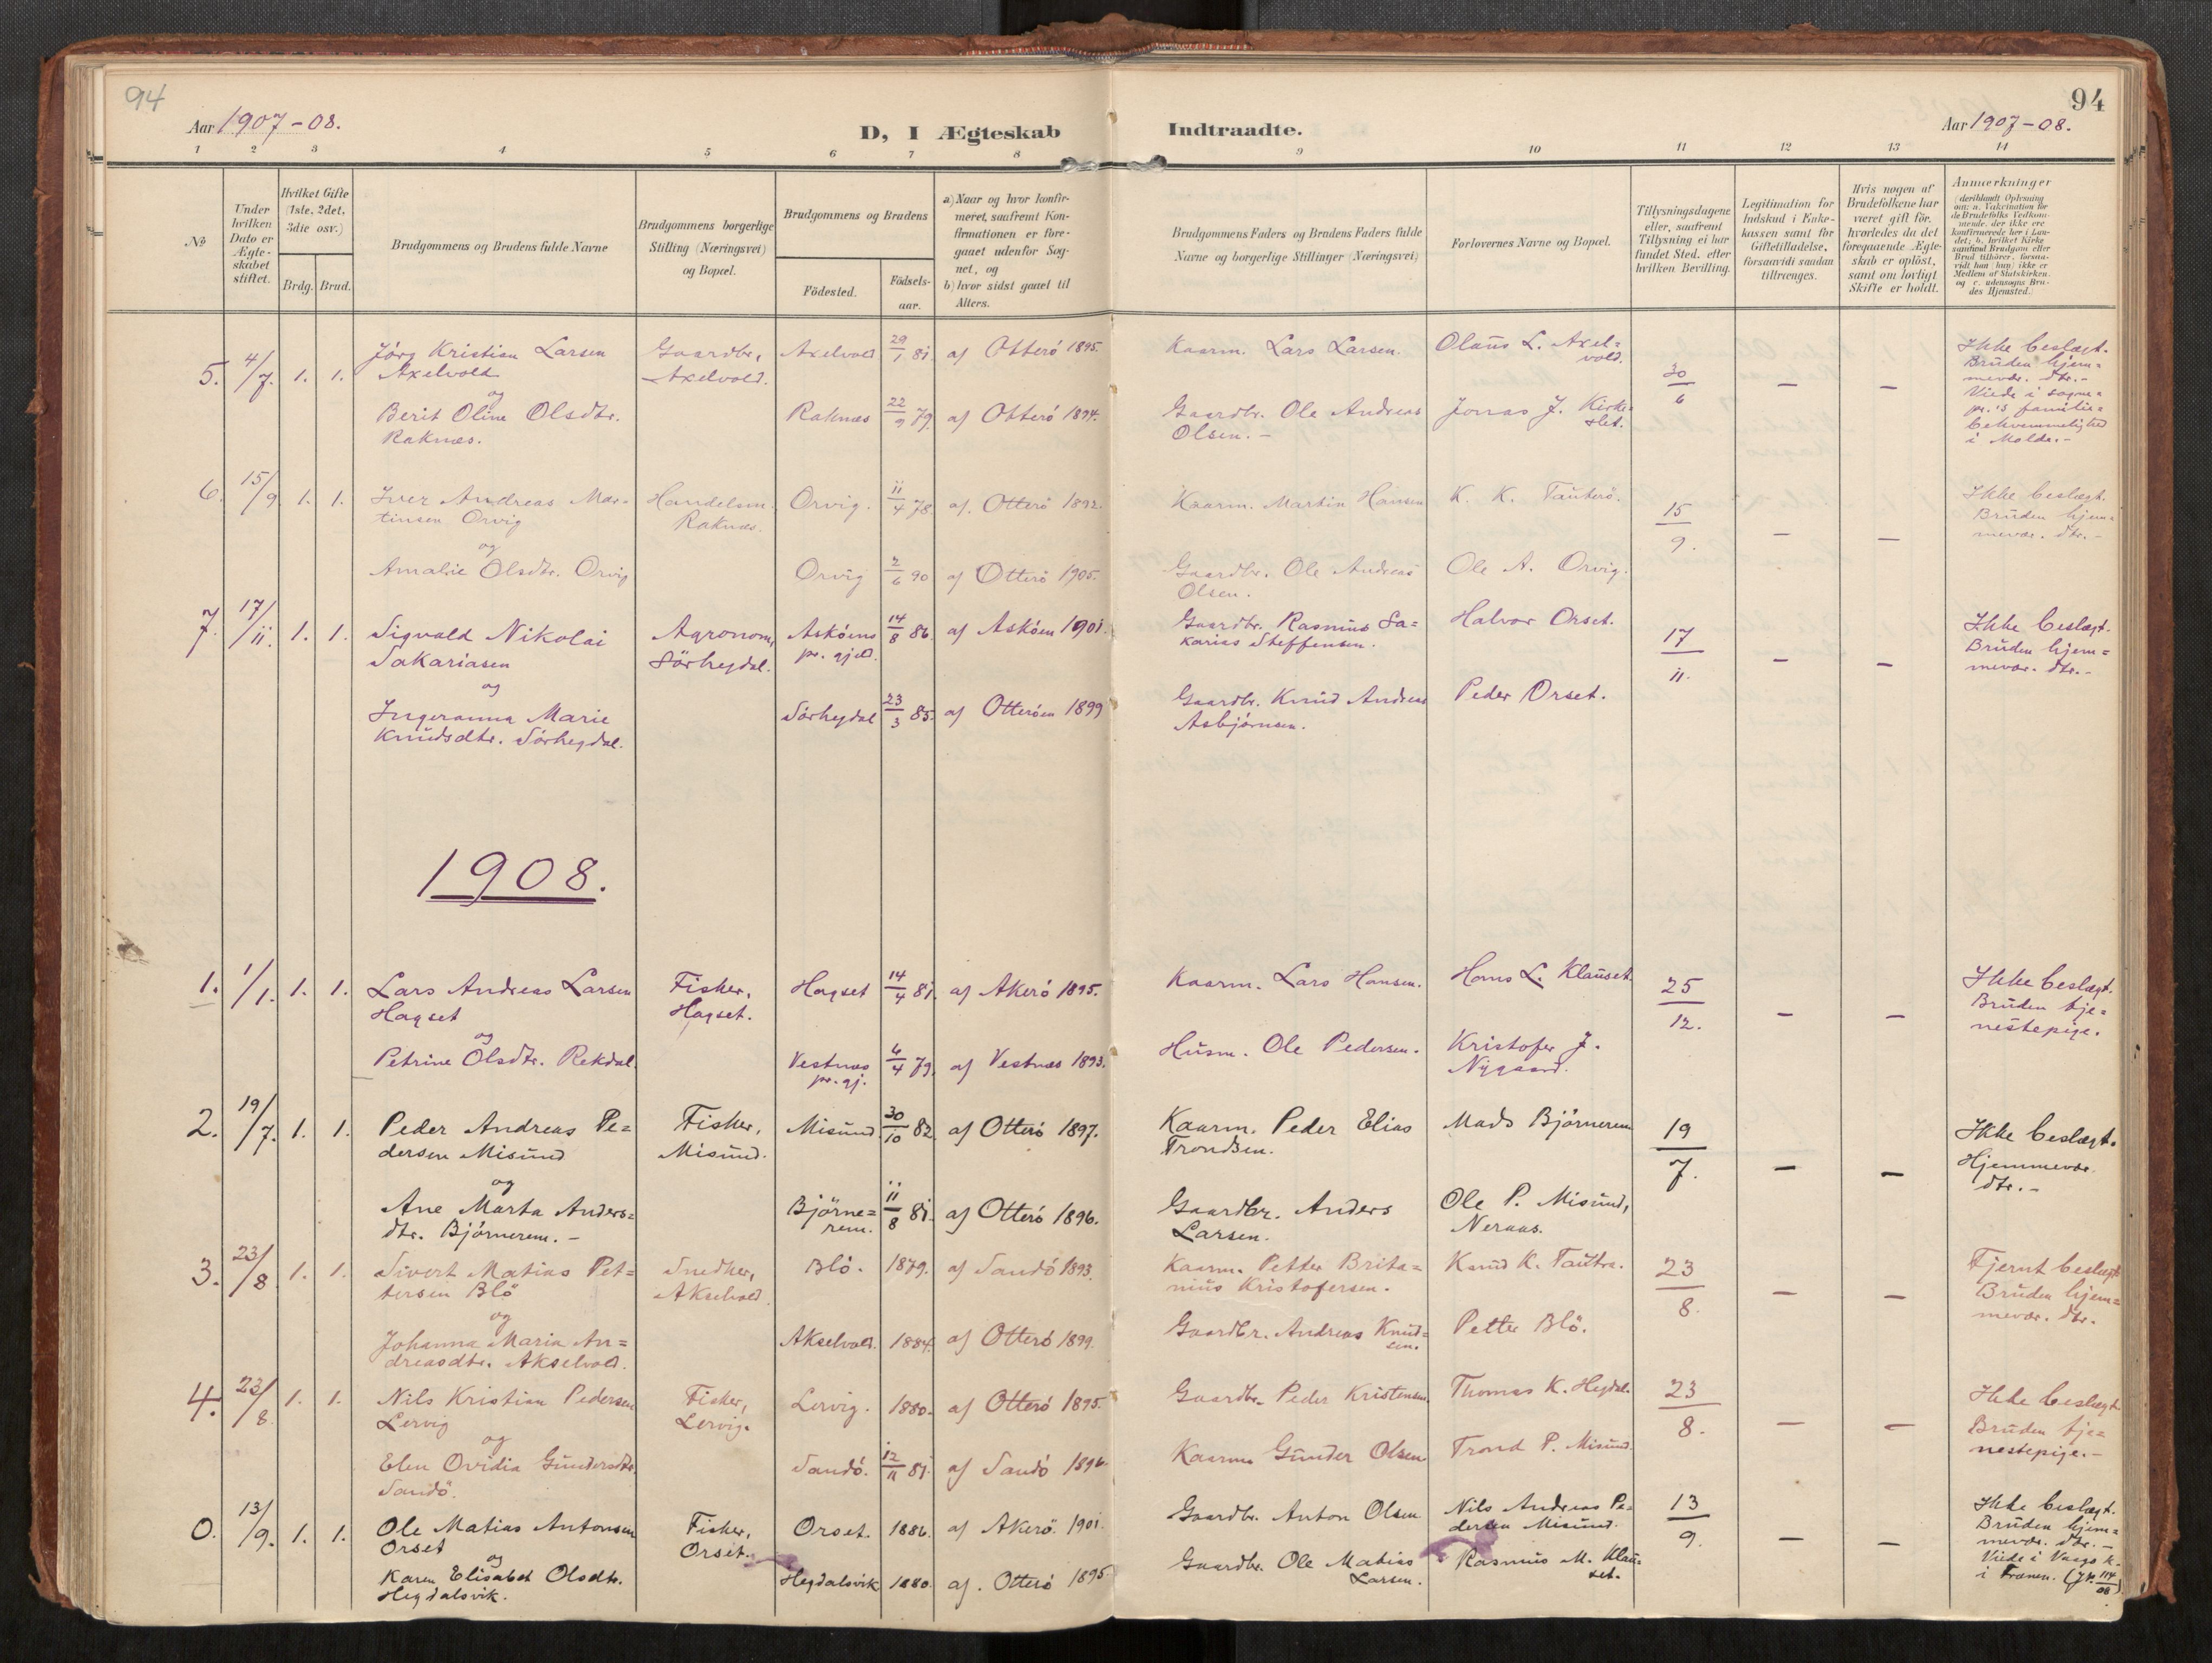 94
Aar 1907-08.
D, I Ægteskab
Indtraadte.
Aar 1907-08.
94
1 2 3 4 5 6 7 8 9 10 11 12 13 14
No
Under hvilken Dato er Ægte-skabet stiftet.
Hvilket Gifte (1ste, 2det, 3die osv.)
Brdg. Brud.
Brudgommens og Brudens fulde Navne
Brudgommens borgerlige Stilling (Næringsvei) og Bopæl.
Brudgommens og Brudens
Födested.
Födsels-aar.
a) Naar og hvor konfir-meret, saafremt Kon-firmationen er fore-gaaet udenfor Sog-net, og
b) hvor sidst gaaet til Alters.
Brudgommens Faders og Brudens Faders fulde Navne og borgerlige Stillinger (Næringsvei)
Forlovernes Navne og Bopæl.
Tillysningsdagene eller, saafremt Tillysning ei har fundet Sted, efter hvilken Bevilling.
Legitimation for Indskud i Enke-kassen samt for Giftetilladelse, forsaavidt saadan tiltrænges.
Hvis nogen af Brudefolkene har været gift för, hvorledes da det foregaaende Ægte-skab er oplöst, samt om lovligt Skifte er holdt.
Anmærkninger (deriblandt Oplysning om: a. Vakcination for de Brudefolks Vedkom-mende, der ikke ere konfirmerede her i Lan-det; b. hvilket Kirke-samfund Brudgom eller Brud tilhörer, forsaa-vidt han (hun) ikke er Medlem af Statskirken, og c. udensogns Bru-des Hjemsted.)
5. 4/7. 1. 1. Jörg Kristian Larsen Axelvold Gaardbr., Axelvold. Axelvold 29/1 81 af Otterö 1895. Kaarm. Lars Larsen. Olaus L. Axel=vold. 30/6 — — Ikke beslægt. Bruden hjem=mevær. dtr.- Viede i sogne=pr.'s familie=bekvemmelighed i Molde.-
og
Berit Oline Olsdtr. Raknæs. Raknæs 22/9 79. af Otterö 1894. Gaardbr. Ole Andreas Olsen.- Jonas J. Kirke=slet.
6. 15/9 1. 1. Iver Andreas Mar-tinsen Orvig Handelsm. Raknæs. Orvig. 11/4 78. af. Otterö 1892. Kaarm. Martin Hansen K. K. Tauterö. 15/9. — — Ikke beslægt. Bruden hjem=mevær. dtr.-
og
Amalie Olsdtr. Orvig Orvig 2/6 90 af Otterö 1905. Gaardbr. Ole Andreas Olsen. Ole A. Orvig.
7. 17/11. 1. 1. Sigvald Nikolai Sakariasen Agronom, Sörhegdal. Asköens pr. gjeld. 14/8 86. af Asköen 1901. Gaardbr. Rasmus Sa=karias Steffensen. Halvor Orset. 17/11. — — Ikke beslægt. Bruden hjem=mevær. dtr.-
og
Ingeranna Marie Knudsdtr. Sörhegdal. Sörhegdal 23/3 85. af Otteröen 1899 Gaardbr. Knud Andreas Asbjörnsen. Peder Orset.
1908.
1. 1/1. 1. 1. Lars Andreas Larsen Hagset Fisker, Hagset. Hagset 14/4 81. af Akerö 1895. Kaarm. Lars Hansen. Hans L. Klauset 25/12. — — Ikke beslægt. Bruden tje=nestepige.
og
Petrine Olsdtr. Rekdal. Vestnæs pr. gj. 6/4 79. af Vestnæs 1893. Husm. Ole Pedersen. Kristofer J. Nygaard.
2. 19/7. 1. 1. Peder Andreas Pe=dersen Misund Fisker, Misund. Misund. 30/10 82. af Otterö 1897. Kaarm. Peder Elias Trondsen. Mads Björnerem 19/7. — — Ikke beslægt. Hjemmevær. dtr.-
og
Ane Marta Anders=dtr. Björnerem.- Björne=rem. 11/8 81. af Otterö 1896. Gaardbr. Anders Larsen. Ole P. Misund, Neraas.
3. 23/8 1. 1. Sivert Matias Pet=tersen Blö Snedker, Akselvold. Blö. 1879. af Sandö 1893. Kaarm. Petter Brita=nius Kristofersen. Knud K. Tautra. 23/8. — — Fjernt beslægt Bruden hjem=mevær. dtr.
og
Johanna Maria An=dreasdtr. Akselvold. Akselvold. 1884. af Otterö 1899. Gaardbr. Andreas Knud=sen. Petter Blö.
4. 23/8. 1. 1. Nils Kristian Pedersen Lervig Fisker, Lervig. Lervig. 1880. af Otterö 1895. Gaardbr. Peder Kristensen. Thomas K. Hegdal. 23/8. — — Ikke beslægt Bruden tje=nestepige.-
og
Elen Ovidia Gundersdtr. Sandö. Sandö. 12/11 81. af Sandö 1896. Kaarm. Gunder Olsen Trond P. Misund.
0. 13/9. 1. 1. Ole Matias Antonsen Orset Fisker, Orset. Orset. 1886. af Akerö. 1901. Gaardbr. Anton Olsen Nils Andreas Pe=dersen Misund. 13/9. — — Ikke beslægt. Bruden hjem=mevær. dtr.- Viede i Vaagö k. i Frænen. (Jr. 114/08).
og
Karen Elisabet Olsdtr. Hegdalsvik. Hegdalsvik 1880. af. Otterö 1895. Gaardbr. Ole Matias Larsen. Rasmus M. Klau=set.